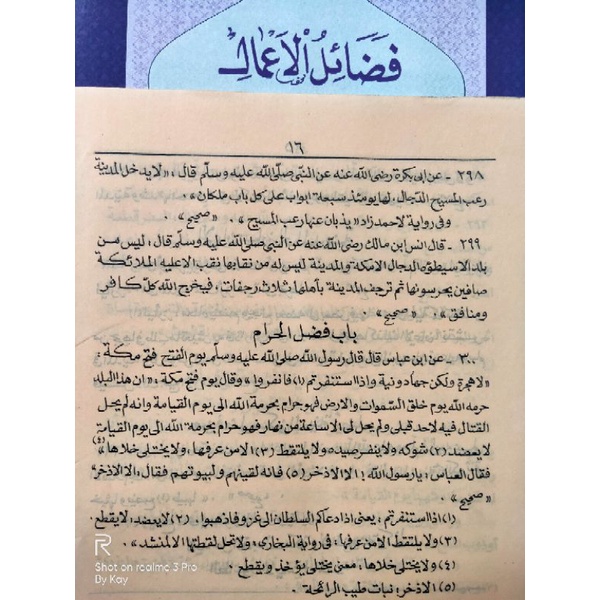 فَضَائِلُ الْأَعْمَالِ
١٦
٢٩٨ - عن ابى بكرة رضى الله عنه عن النبى صلى الله عليه وسلم قال: «لا يدخل المدينة
رعب المسيح الدجال، لها يومئذ سبعة ابواب على كل باب ملكان».
وفى رواية لاحمد زاد «يذبان عنها رعب المسيح». «صحيح».
٢٩٩ - قال انس ابن مالك رضى الله عنه عن النبى صلى الله عليه وسلم قال: ليس من
بلد الا سيطؤه الدجال الا مكة والمدينة ليس له من نقابها نقب الا عليه الملائكة
صافين يحرسونها ثم ترجف المدينة بأهلها ثلاث رجفات، فيخرج الله كل كافر
ومنافق». «صحيح».
باب فضل الحرام
٣٠٠ - عن ابن عباس قال قال رسول الله صلى الله عليه وسلم يوم الفتح فتح مكة:
«لا هجرة ولكن جهاد ونية واذا استنفرتم (١) فانفروا» وقال يوم فتح مكة: «ان هذا البلد
حرمه الله يوم خلق السموات والارض فهو حرام بحرمة الله الى يوم القيامة وانه لم يحل
القتال فيه لاحد قبلى ولم يحل لى الا ساعة من نهار فهو حرام بحرمة الله الى يوم القيامة
لا يعضد (٢) شوكه ولا ينفر صيده ولا يلتقط (٣) الا من عرفها، ولا يختلى خلاها» (٤)
فقال العباس: يا رسول الله! الا الاذخر (٥) فانه لقينهم ولبيوتهم فقال: الا الاذخر»
«صحيح».
(١) اذا استنفرتم: يعنى اذا دعاكم السلطان الى غزو فاذهبوا. (٢) لا يعضد: لا يقطع.
(٣) ولا يلتقط الا من عرفها: فى رواية البخارى: ولا تحل لقطتها الا لمنشد».
(٤) ولا يختلى خلاها: معنى يختلى يؤخذ ويقطع.
(٥) الاذخر: نبات طيب الرائحة.
R
Shot on realme 3 Pro
By Kay